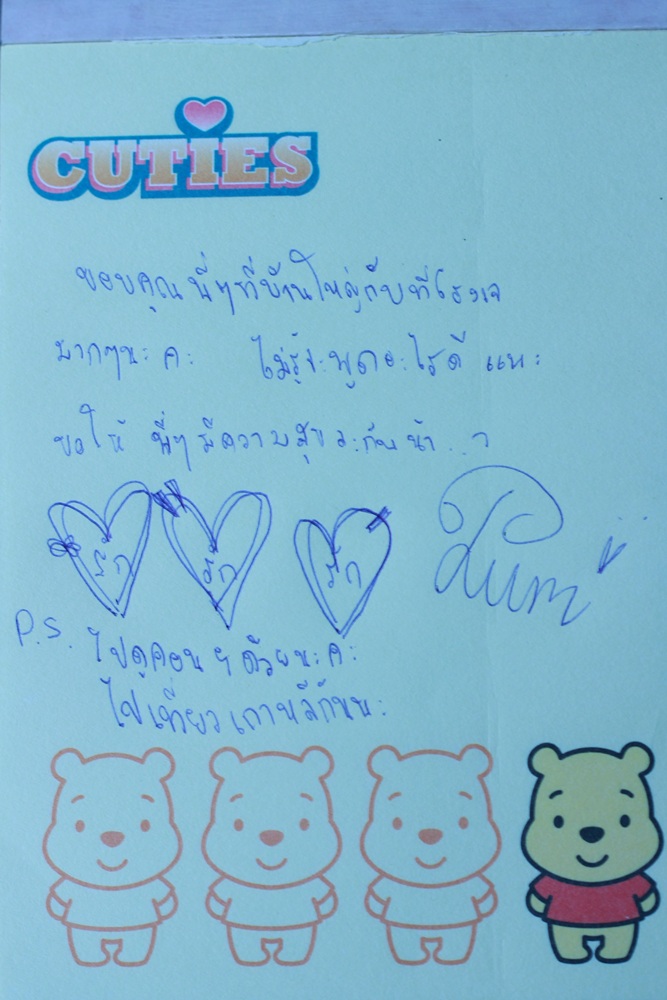 CUTIES
ขอบคุณ พี่ๆที่บ้านใหญ่กับที่โรงเจ
มากๆนะคะ ไม่รู้จะพูดอะไรดี แหะ
ขอให้ พี่ๆมีความสุขละกันน้า...า
รัก รัก รัก
P.S. ไปดูคอนฯด้วยนะคะ
ไปเที่ยวเกาหลีกันนะ